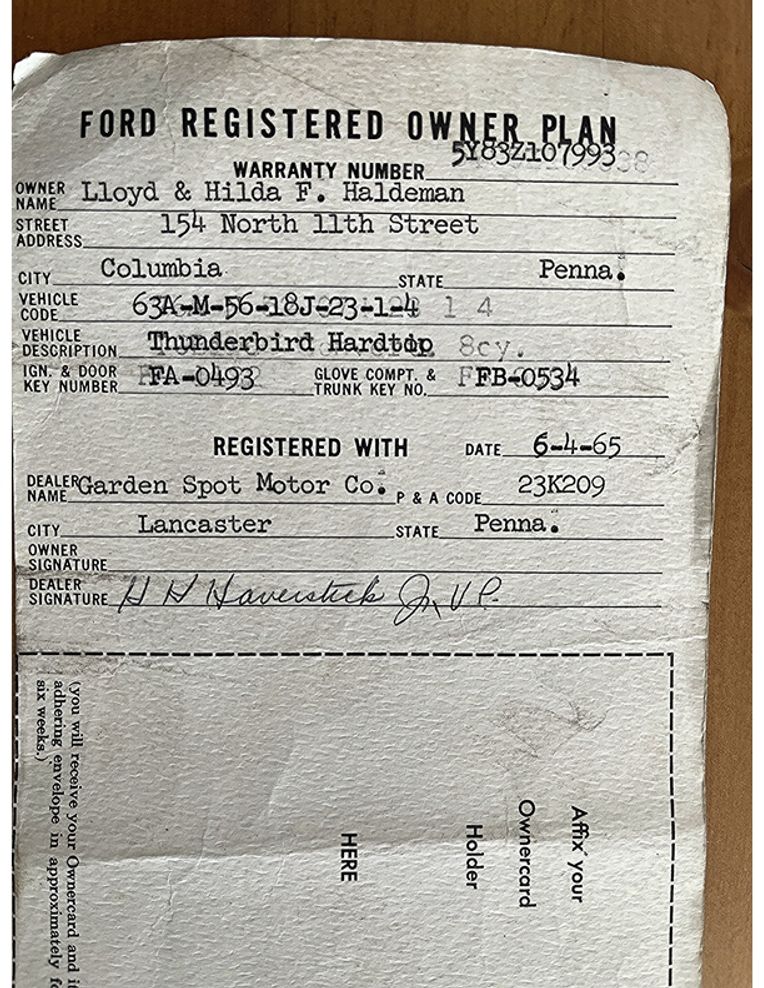 FORD REGISTERED OWNER PLAN
WARRANTY NUMBER 5Y83Z107993
OWNER NAME Lloyd & Hilda F. Haldeman
STREET ADDRESS 154 North 11th Street
CITY Columbia STATE Penna.
VEHICLE CODE 63A-M-56-18J-23-1-4 1 4
VEHICLE DESCRIPTION Thunderbird Hardtop 8cy.
IGN. & DOOR KEY NUMBER FA-0493 GLOVE COMPT. & TRUNK KEY NO. FB-0534
REGISTERED WITH DATE 6-4-65
DEALER NAME Garden Spot Motor Co. P & A CODE 23K209
CITY Lancaster STATE Penna.
OWNER SIGNATURE
DEALER SIGNATURE H H Haverstick Jr, V P.
(you will receive your Ownercard and
adhering envelope in approximately
six weeks.)
Affix your
Ownercard
Holder
HERE